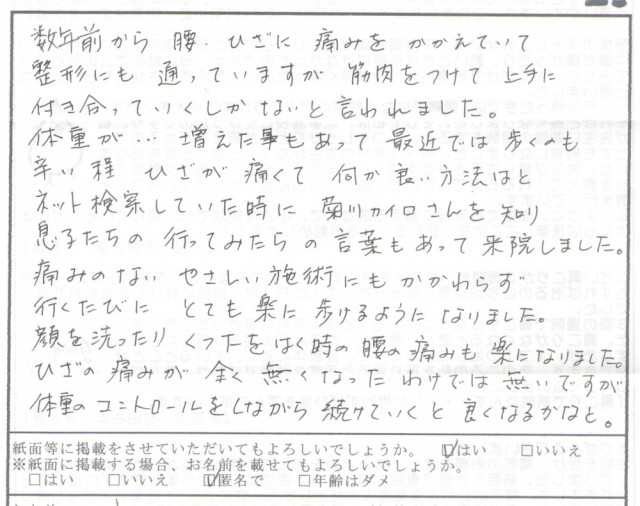 数年前から 腰・ひざに 痛みをかかえていて
整形にも 通っていますが 筋肉をつけて上手に
付き合っていくしかないと言われました。
体重が… 増えた事もあって 最近では歩くのも
辛い程 ひざが 痛くて 何か良い方法はと
ネット検索していた時に 菊川カイロさんを知り
息子たちの 行ってみたらの言葉もあって来院しました。
痛みのない やさしい施術にもかかわらず
行くたびに とても 楽に 歩けるようになりました。
顔を洗ったり くつ下をはく時の腰の痛みも 楽になりました。
ひざの 痛みが 全く 無くなった わけでは 無いですが
体重のコントロールをしながら 続けていくと 良くなるかなと。
紙面等に掲載をさせていただいてもよろしいでしょうか。 ☑はい □いいえ
※紙面に掲載する場合、お名前を載せてもよろしいでしょうか。
□はい □いいえ ☑匿名で □年齢はダメ